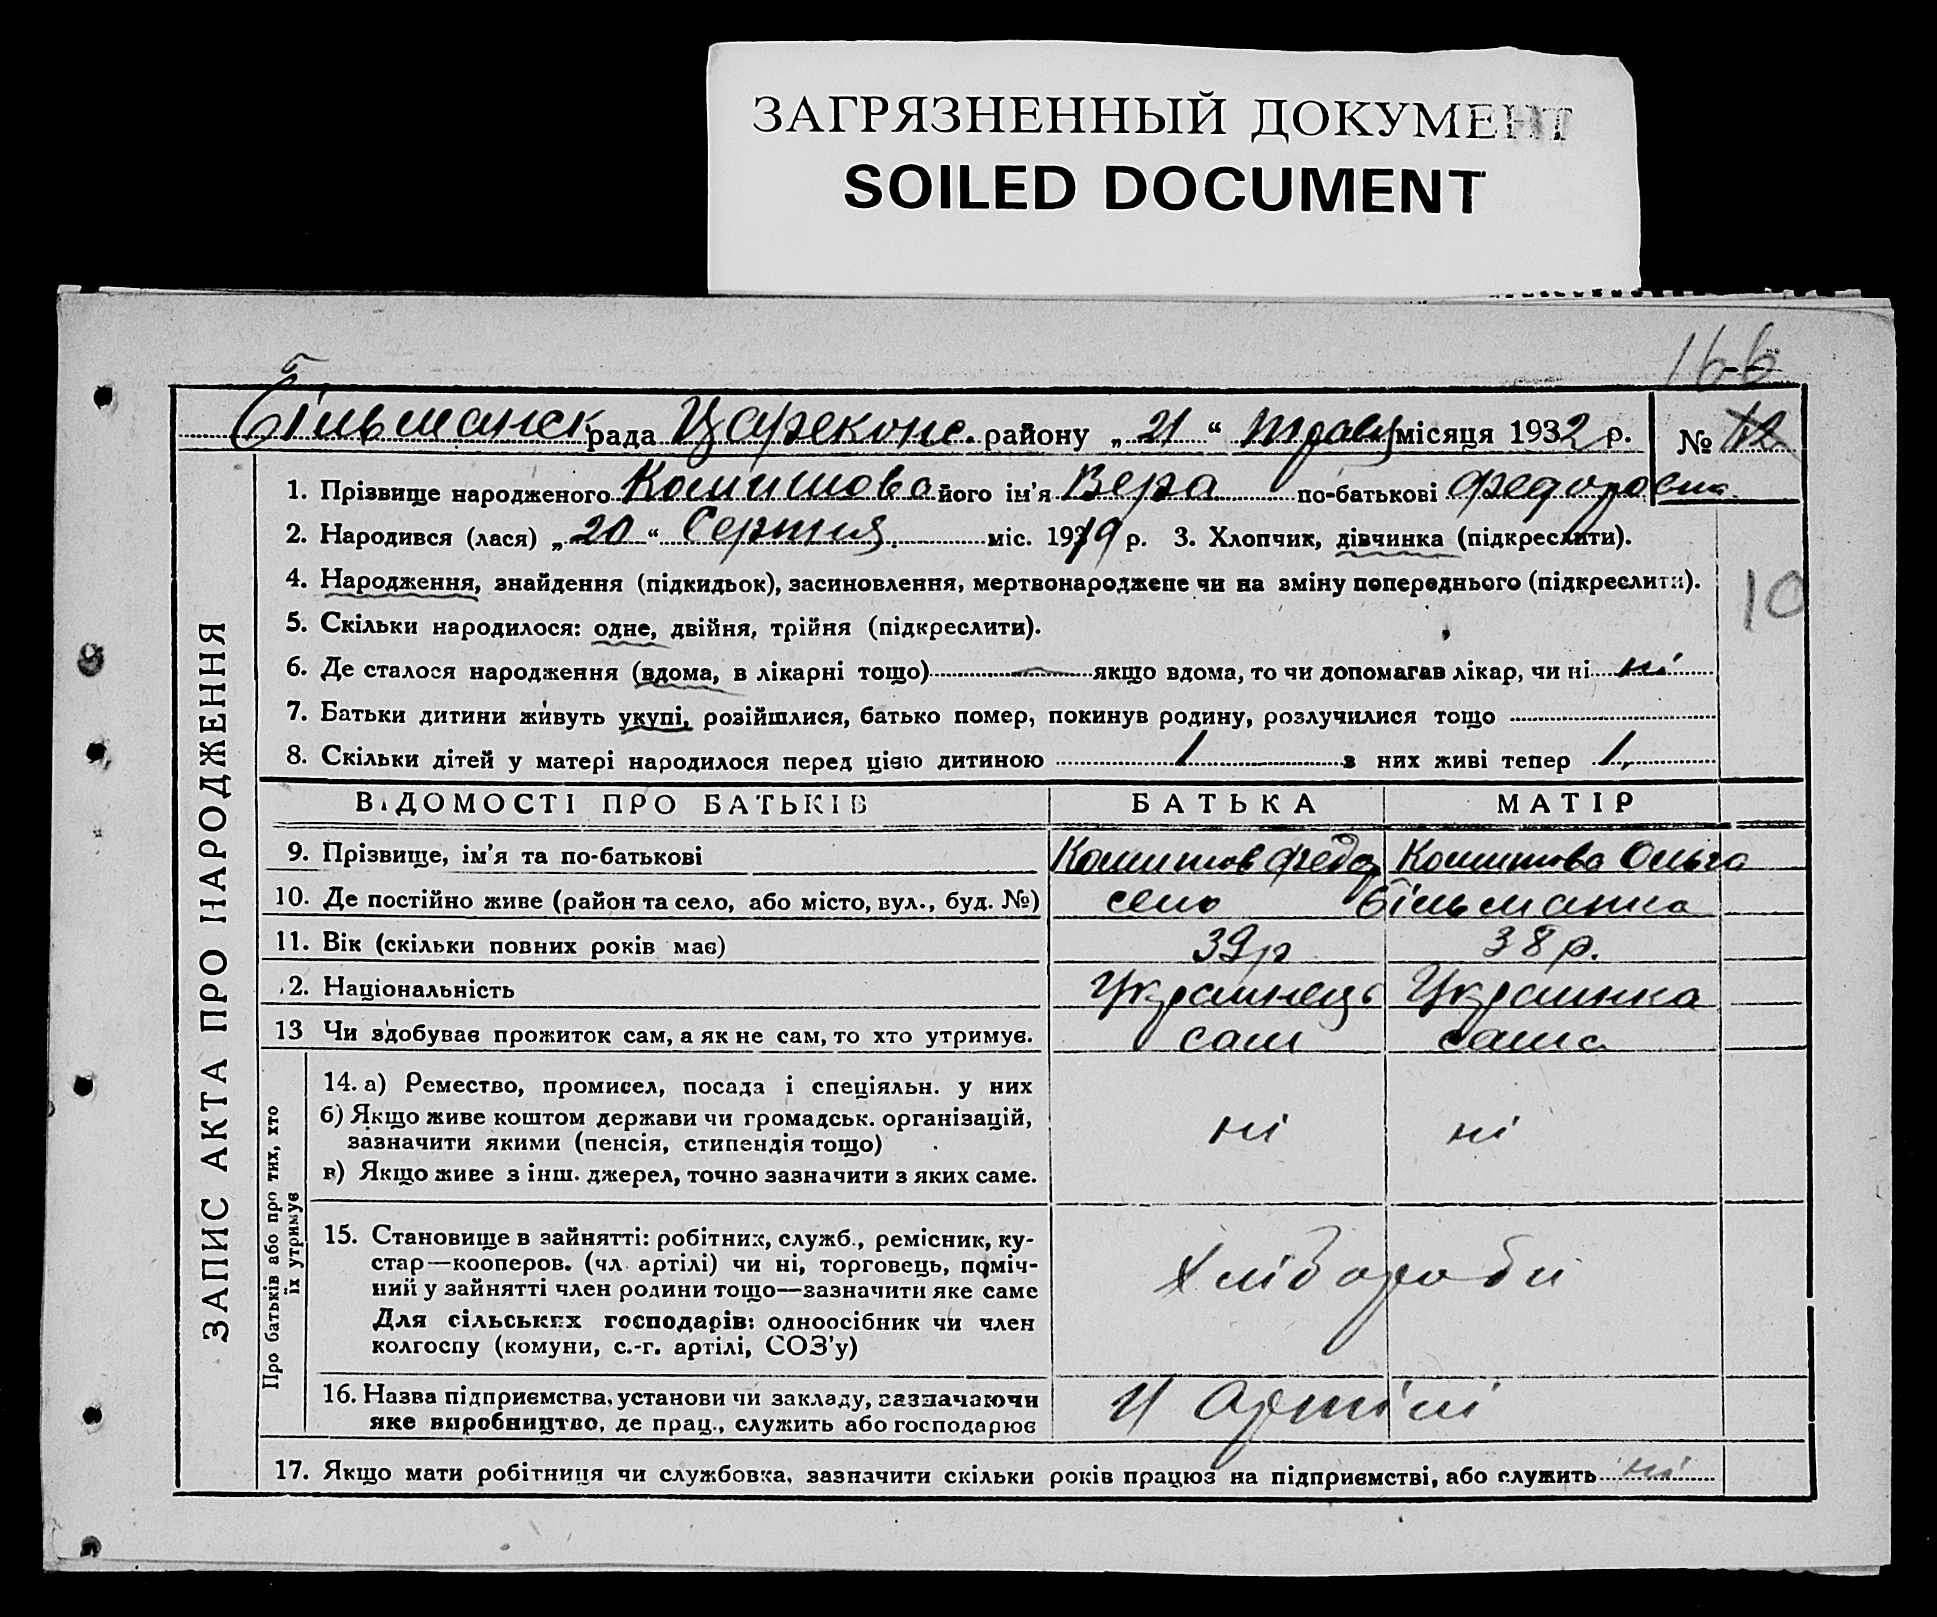 ЗАГРЯЗНЕННЫЙ ДОКУМЕНТ
SOILED DOCUMENT
166
Більманск рада Цареконс. району „ 21 “ травц місяця 1932 р. № 12
1. Прізвище народженого Комишова його ім'я Вера по-батькові Федоровна
2. Народився (лася) „ 20 “ Серпня міс. 1919 р. 3. Хлопчик, дівчинка (підкреслити).
4. Народження, знайдення (підкидьок), засиновлення, мертвонароджене чи на зміну попереднього (підкреслити).
10
5. Скільки народилося: одне, двійня, трійня (підкреслити).
6. Де сталося народження (вдома, в лікарні тощо) — якщо вдома, то чи допомагав лікар, чи ні ні
7. Батьки дитини живуть укупі, розійшлися, батько помер, покинув родину, розлучилися тощо
8. Скільки дітей у матері народилося перед цією дитиною 1 з них живі тепер 1
ВІДОМОСТІ ПРО БАТЬКІВ БАТЬКА МАТІР
9. Прізвище, ім'я та по-батькові Комишов Федор Комишова Ольга
10. Де постійно живе (район та село, або місто, вул., буд. №) село Більманка
11. Вік (скільки повних років має) 39р 38р.
12. Національність Украинець Украинка
13 Чи здобуває прожиток сам, а як не сам, то хто утримує. сам сама
14. а) Ремество, промисел, посада і спеціяльн. у них
б) Якщо живе коштом держави чи громадськ. організацій,
зазначити якими (пенсія, стипендія тощо) ні ні
в) Якщо живе з інш. джерел, точно зазначити з яких саме.
15. Становище в зайнятті: робітник, служб., ремісник, ку-
стар—кооперов. (чл. артілі) чи ні, торговець, поміч-
ний у зайнятті член родини тощо—зазначити яке саме Хлібороби
Для сільських господарів: одноосібник чи член
колгоспу (комуни, с.-г. артілі, СОЗ'у)
16. Назва підприємства, установи чи закладу, зазначаючи
яке виробництво, де прац., служить або господарює У Артілі
17. Якщо мати робітниця чи службовка, зазначити скільки років працює на підприємстві, або служить ні
ЗАПИС АКТА ПРО НАРОДЖЕННЯ
Про батьків або про тих, хто
їх утримує